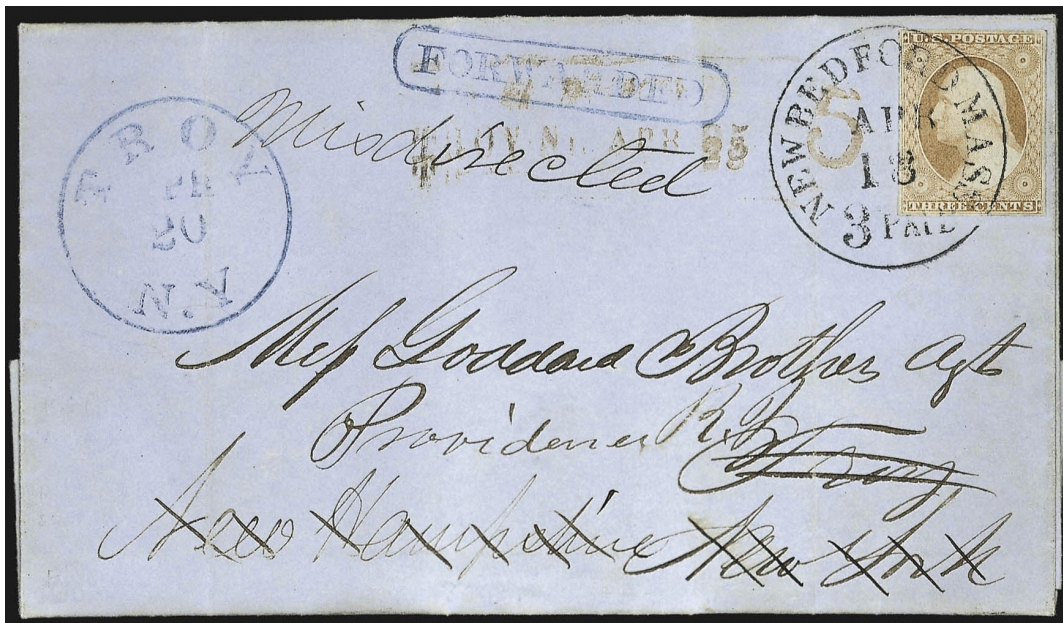 FORWARDED
Misdirected
TROY N. APR 25
TROY
20
N.Y
NEW BEDFORD MASS
APR
13
3 PAID
5
U.S. POSTAGE
THREE CENTS
Mess Goddard Brothers Agts
Providence R.I. Troy
New Hampshire New York